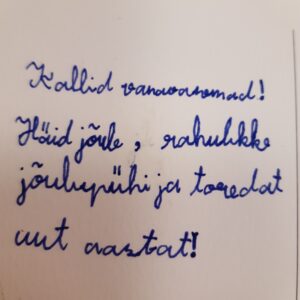 Kallid vanavanemad!
Häid jõule, rahulikke
jõulupühi ja toredat
uut aastat!